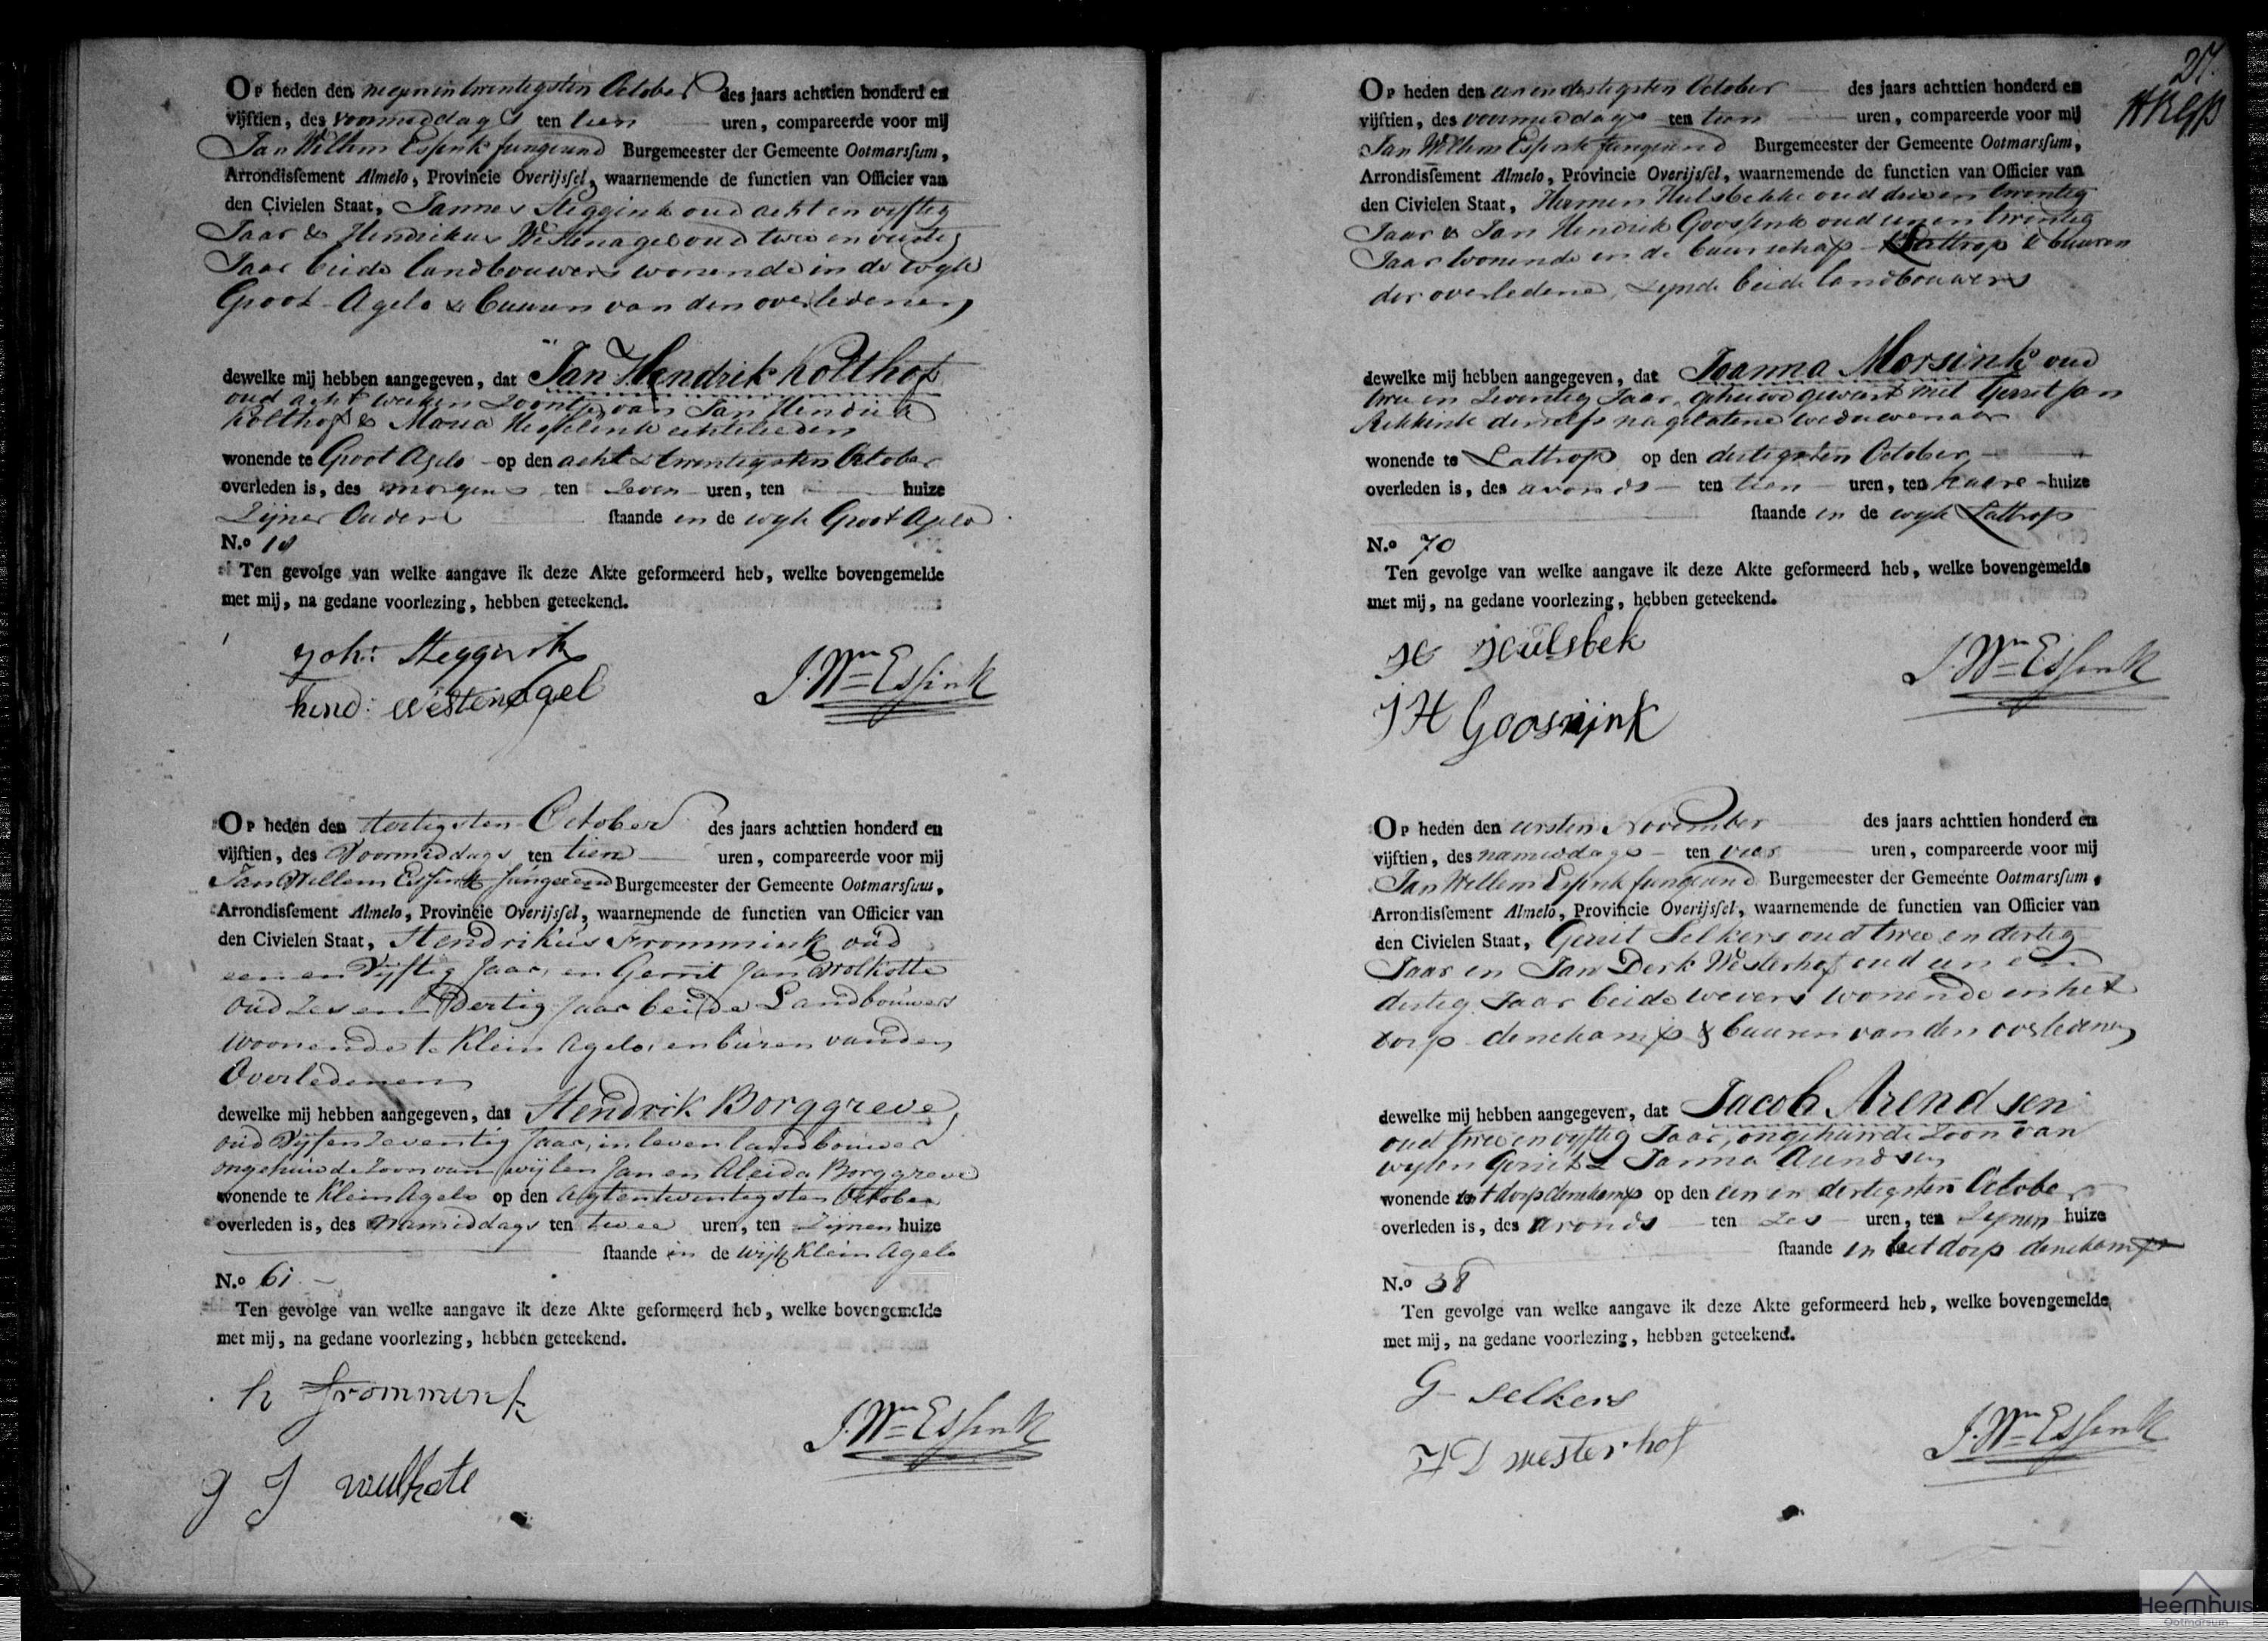 Op heden den negenintwentigsten October des jaars achttien honderd en
vijftien, des voormiddags ten tien uren, compareerde voor mij
Jan Willem Essink fungerend Burgemeester der Gemeente Ootmarssum,
Arrondissement Almelo, Provincie Overijssel, waarnemende de functien van Officier van
den Civielen Staat, Jannes Steggink oud acht en vyftig
Jaar & Hendrikus Westenagel oud twee en veertig
Jaar beide landbouwers wonende in de wyk
Groot Agelo & buuren van den overledenen
dewelke mij hebben aangegeven, dat Jan Hendrik Kolthof
oud acht weeken Zoontje van Jan Hendrik
Kolthof & Maria echtelieden
wonende te Groot Agelo op den acht & twentigsten October
overleden is, des morgens ten Zeven uren, ten huize
Zijner Ouders staande in de wyk Groot Agelo
N.o 18
Ten gevolge van welke aangave ik deze Akte geformeerd heb, welke bovengemelde
met mij, na gedane voorlezing, hebben geteekend.
Joh: Steggink
hend: Westenagel
J. Wm Essink
Op heden den dertigsten October des jaars achttien honderd en
vijftien, des Voormiddags ten tien uren, compareerde voor mij
Jan Willem Essink fungerend Burgemeester der Gemeente Ootmarssum,
Arrondissement Almelo, Provincie Overijssel, waarnemende de functien van Officier van
den Civielen Staat, Hendrikus Frommink oud
een en Vijftig Jaar, en Gerrit Jan Wolkotte
oud Zes en Dertig Jaar beide Landbouwers
woonende te Klein Agelo, en buren van den
Overledenen
dewelke mij hebben aangegeven, dat Hendrik Borggreve,
oud Vijf en Zeventig Jaar, in leven landbouwer
ongehuwde Zoon van wijlen Jan en Aleida Borggreve
wonende te Klein Agelo op den Agtentwentigsten October
overleden is, des Namiddags ten twee uren, ten Zijnen huize
staande in de wijk Klein Agelo
N.o 61
Ten gevolge van welke aangave ik deze Akte geformeerd heb, welke bovengemelde
met mij, na gedane voorlezing, hebben geteekend.
h frommink
g J wulkote
J. Wm Essink
27.
Op heden den een en dertigsten October des jaars achttien honderd en
vijftien, des voormiddags ten tien uren, compareerde voor mij
Jan Willem Essink fungerend Burgemeester der Gemeente Ootmarssum,
Arrondissement Almelo, Provincie Overijssel, waarnemende de functien van Officier van
den Civielen Staat, Hermen Hulsbekke oud drie en twentig
Jaar & Jan Hendrik Goossink oud een en twentig
Jaar wonende in de buurschap Lattrop & buuren
der overledene, Zynde beide landbouwers
dewelke mij hebben aangegeven, dat Joanna Morsink oud
twee en Zeventig Jaar, gehuwd geweest met Gerrit Jan
Rekkink nagelatene weduwenaar
wonende te Lattrop op den dertigsten October
overleden is, des avonds ten tien uren, ten haare huize
staande in de wyk Lattrop
N.o 70
Ten gevolge van welke aangave ik deze Akte geformeerd heb, welke bovengemelde
met mij, na gedane voorlezing, hebben geteekend.
H Hulsbek
J H Goosnink
J. Wm Essink
Op heden den eersten November des jaars achttien honderd en
vijftien, des namiddags ten vier uren, compareerde voor mij
Jan Willem Essink fungerend Burgemeester der Gemeente Ootmarssum,
Arrondissement Almelo, Provincie Overijssel, waarnemende de functien van Officier van
den Civielen Staat, Gerrit Selkers oud twee en dertig
Jaar en Jan Derk Westerhof oud een en
dertig Jaar beide wevers wonende in het
dorp denekamp & buuren van den overledenen
dewelke mij hebben aangegeven, dat Jacob Arendsen
oud twee en vyftig Jaar, ongehuwde Zoon van
wylen Gerrit & Janna Arendsen
wonende int dorp denekamp op den een en dertigsten October
overleden is, des avonds ten Zes uren, ten Zynen huize
staande in het dorp denekamp
N.o 38
Ten gevolge van welke aangave ik deze Akte geformeerd heb, welke bovengemelde
met mij, na gedane voorlezing, hebben geteekend.
G selkers
J D westerhof
J. Wm Essink
Heemhuis
Ootmarsum